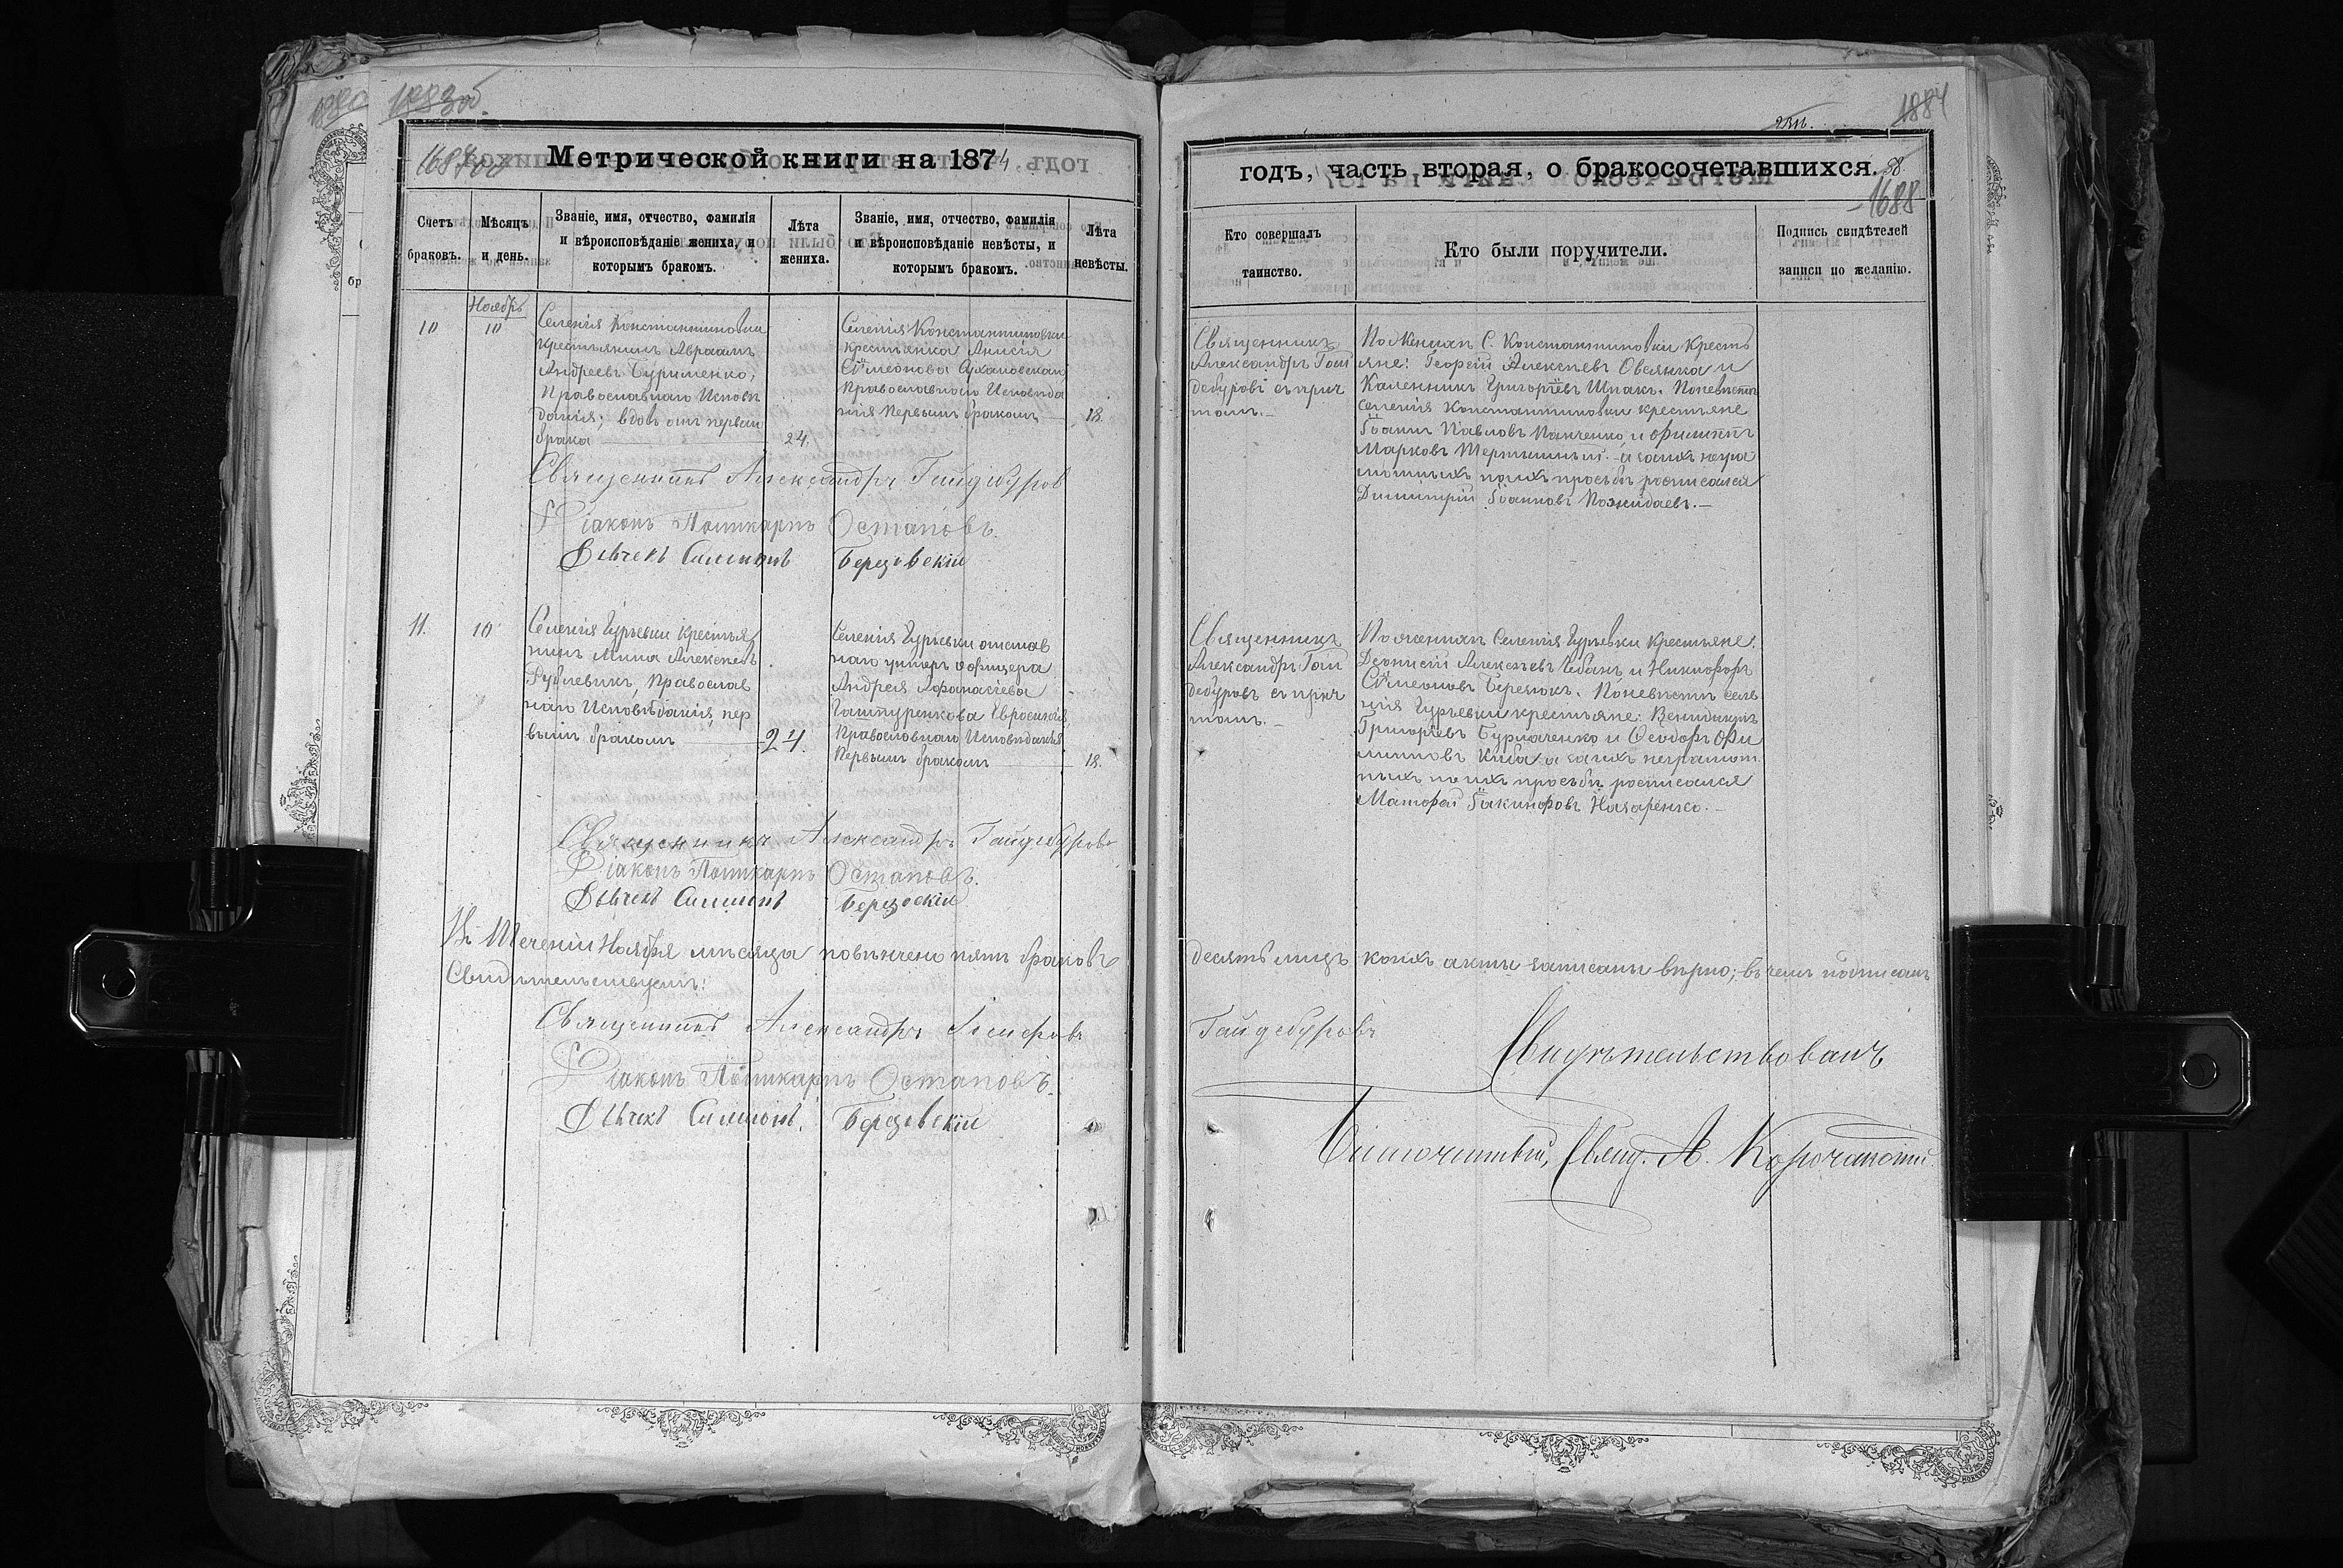 1883об
1884
1687об
Метрической книги на 1874
годъ, часть вторая, о бракосочетавшихся.
1688
Счетъ браковъ.
Мѣсяцъ и день.
Званіе, имя, отчество, фамилія и вѣроисповѣданіе жениха, и которымъ бракомъ.
Лѣта жениха.
Званіе, имя, отчество, фамилія и вѣроисповѣданіе невѣсты, и которымъ бракомъ.
Лѣта невѣсты.
Кто совершалъ таинство.
Кто были поручители.
Подпись свидѣтелей записи по желанію.
Ноябрь
10
10
Селенія Константиновки
крестьянинъ Авраамъ
Андреевъ Бурименко,
Православнаго Исповѣ
данія, вдовъ отъ перваго
брака
24.
Селенія Константиновки
крестьянка Анисія
Сѷмеонова
Православнаго Исповѣда
нія Первымъ бракомъ
18.
Священникъ
Александръ Гай
дебуровъ съ прич
томъ.-
По Женихѣ С. Константиновки Кресть
яне: Георгій Алексѣевъ Овсянка и
Каленникъ Григоріевъ Шпакъ. По невѣстѣ
селенія Константиновки крестьяне
Іоаннъ Павловъ Панченко и Филиппъ
Марковъ а за ихъ негра
мотныхъ по ихъ просьбѣ росписался
Димитрій Іоанновъ Пожидаевъ.-
Священникъ Александръ Гайдебуровъ
Діаконъ Поликарпъ Остаповъ.
Дьячекъ Симеонъ Березовскій
11.
10
Селенія Гурьевки Крестья
нинъ Мина Алексѣевъ
Православ
наго Исповѣданія, пер
вымъ бракомъ
24.
Селенія Гурьевки отстав
наго унтеръ офицера
Андрея Афанасіева
Евросинія
Православнаго Исповѣданія
Первымъ бракомъ
18.
Священникъ
Александръ Гай
дебуровъ съ прич
томъ.-
По женихѣ Селенія Гурьевки Крестьяне
Деонисій Алексѣевъ Чебанъ и Никифоръ
Сѷмеоновъ Березюкъ. По невѣстѣ селе
нія Гурьевки крестьяне: Венидиктъ
Григорьевъ Бурлаченко и Ѳеодоръ Фи
липповъ Киба а за ихъ неграмот
ныхъ по ихъ просьбѣ росписался
Матфей Іакинфовъ Назаренко.-
Священникъ Александръ Гайдебуровъ
Діаконъ Поликарпъ Остаповъ.
Дьячекъ Симеонъ Березовскій
Въ теченіи Ноября мѣсяца повѣнчено пять браковъ десять лицъ коихъ акты записаны вѣрно; въ чемъ подписомъ
Свидѣтельствуемъ:
Священникъ Александръ Гайдебуровъ
Діаконъ Поликарпъ Остаповъ.
Дьячекъ Симеонъ Березовскій
Свидѣтельствовалъ
Благочинный, Свящ. А. Корочанскій